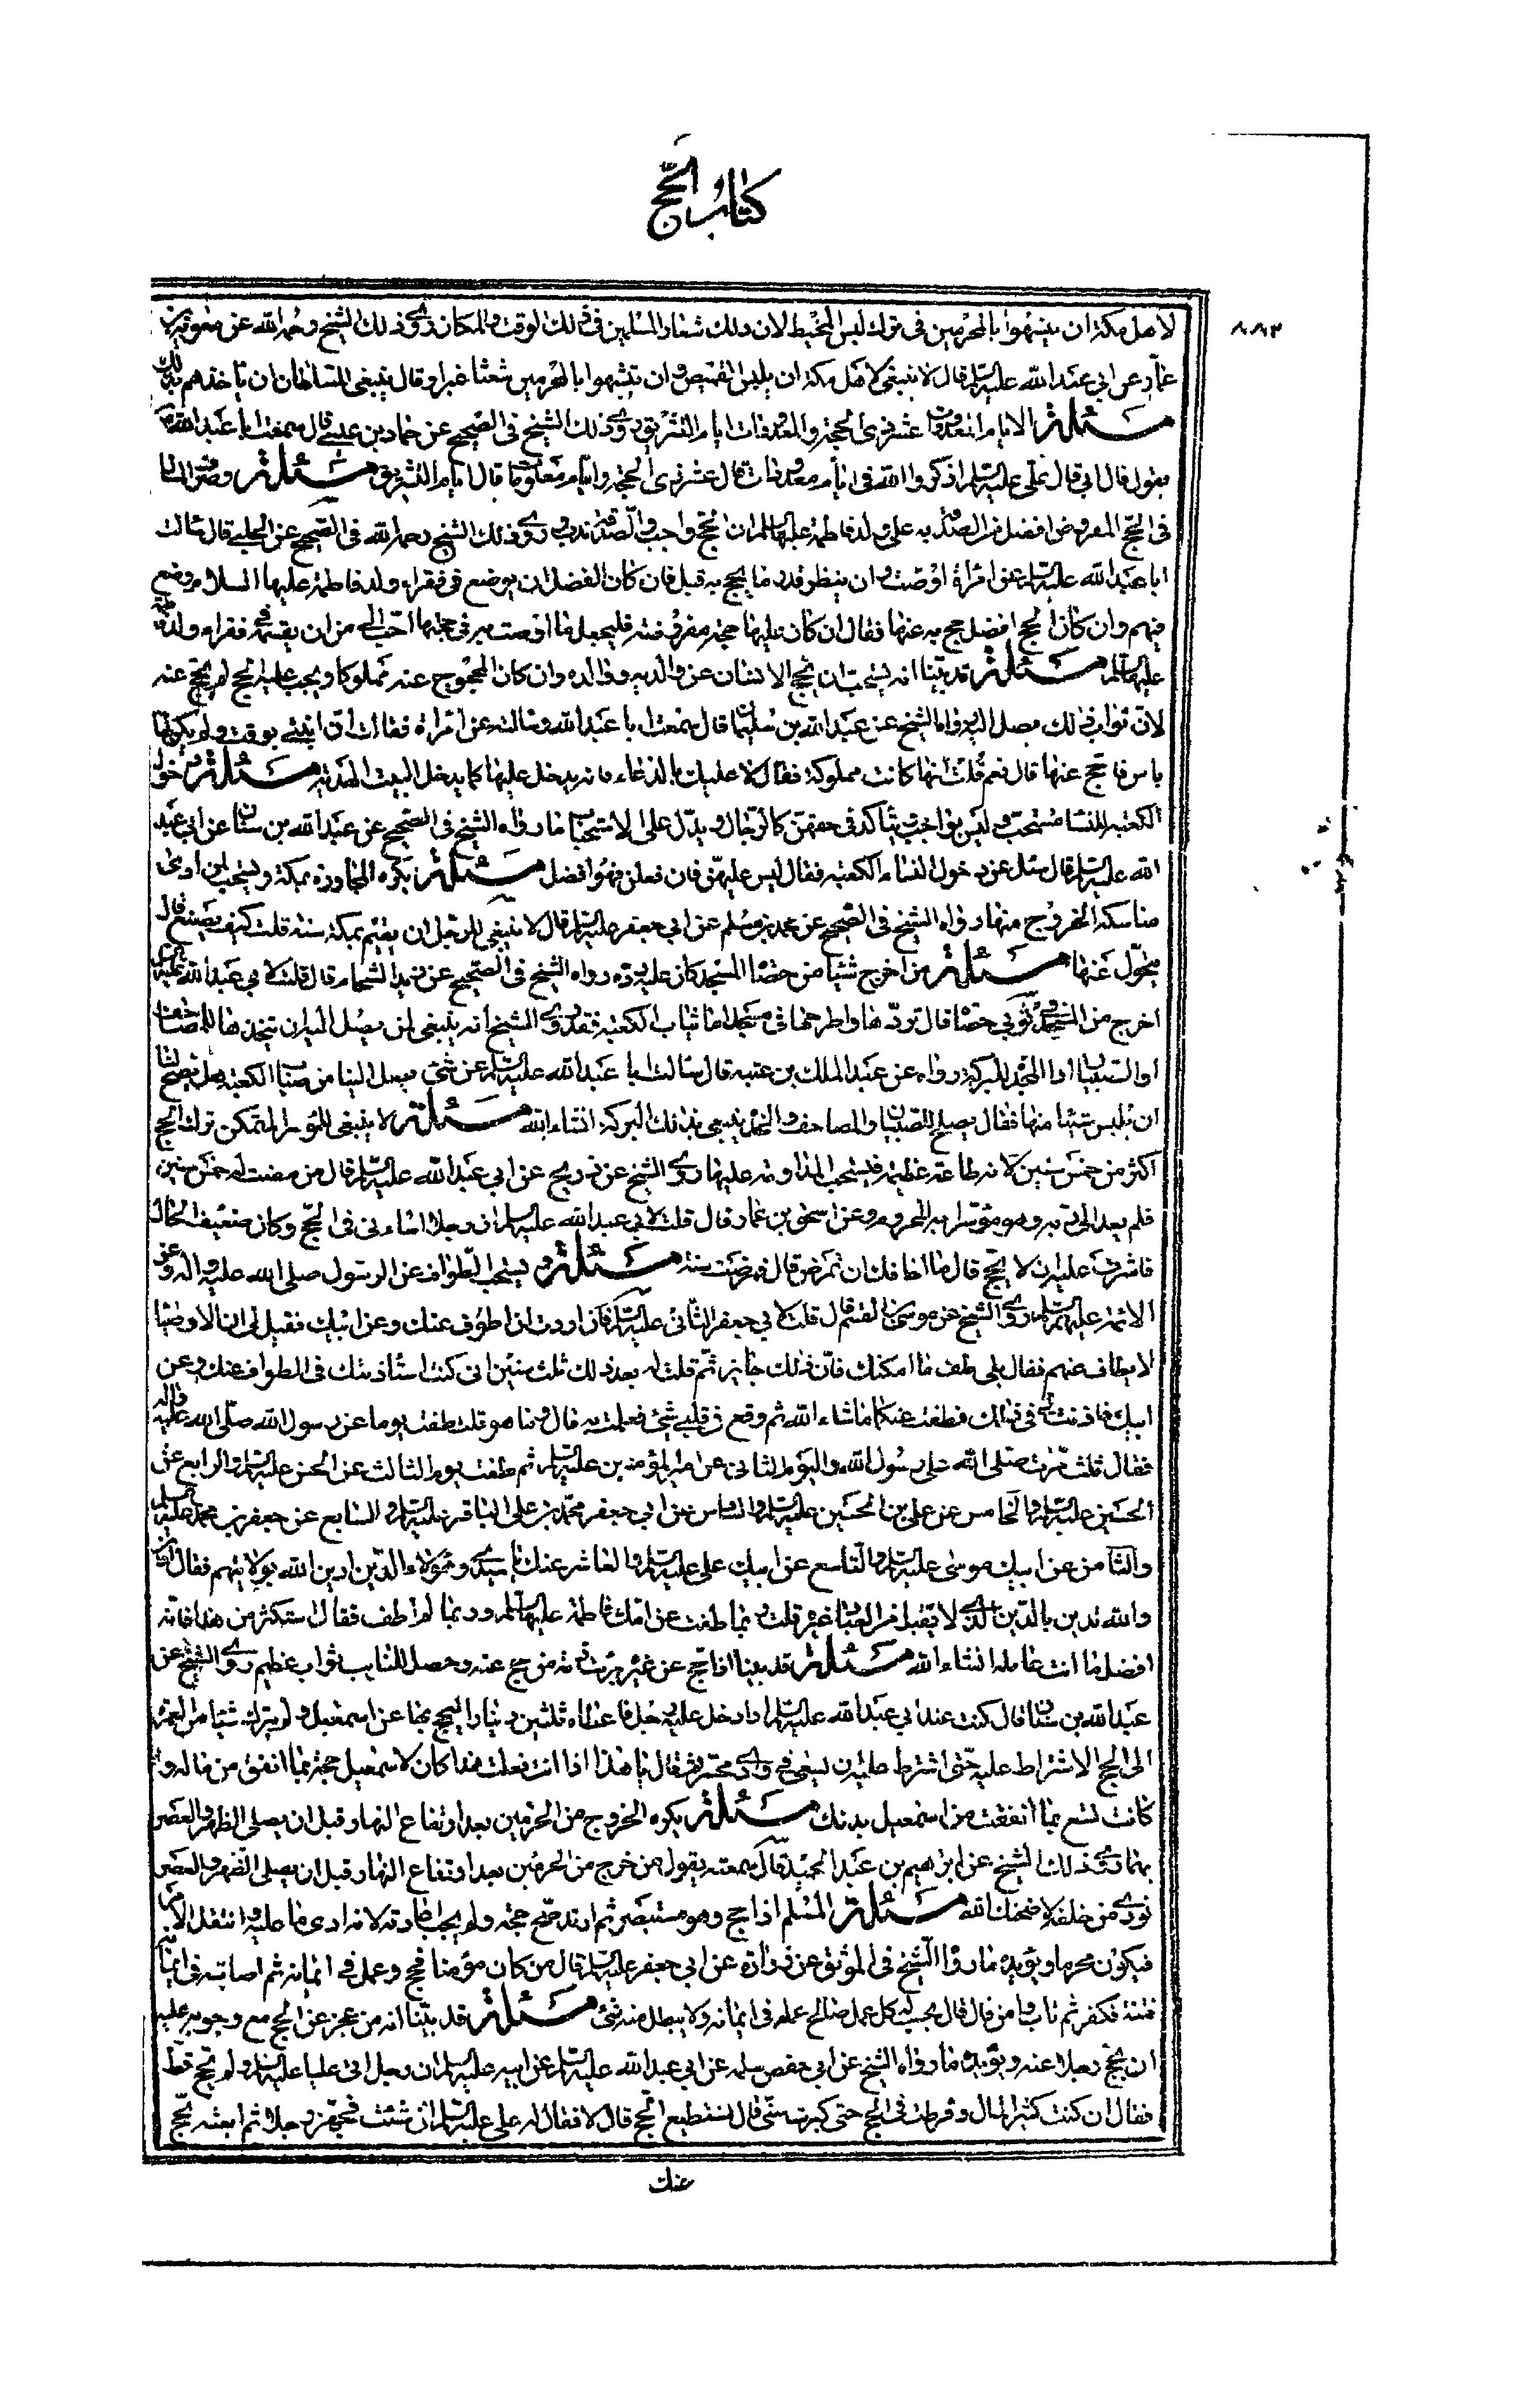 كتاب الحج
٨٨٣
لاهل مكة ان يتشبهوا بالمحرمين في ترك لبس المخيط لان ذلك شعار المسلمين في ذلك الوقت والمكان روى ذلك الشيخ رحمه الله عن معوية بن
عمار عن ابي عبد الله عليه السلم قال لا ينبغي لاهل مكة ان يلبس القميص وان يتشبهوا بالمحرمين شعثا غبرا وقال ينبغي للسلطان ان ياخذهم بذلك
مسئلة الايام المعدودات عشر ذي الحجة والمعلومات ايام التشريق روى ذلك الشيخ في الصحيح عن حماد بن عيسى قال سمعت ابا عبد الله
يقول قال ابي قال علي عليه السلم اذكروا الله في ايام معدودات قال عشر ذي الحجة وايام معلومات قال ايام التشريق مسئلة
في الحج المفروض افضل من الصدقة به على ولد فاطمة عليها السلم لان الحج واجب والصدقة ندب روى ذلك الشيخ رحمه الله في الصحيح عن الحلبي قال سالت
ابا عبد الله عليه السلم عن امراة اوصت ان ينظر قدر ما يحج به قبل فان كان الفضل ان يوضع في فقراء ولد فاطمة عليها السلام وضع
فيهم وان كان الحج افضل حج به عنها فقال ان كان عليها حجة مفروضة فليجعل ما اوصت به في حجتها احب الي من ان يقسم في فقراء ولد فاطمة
عليها السلم مسئلة قد بينا انه يستحب ان يحج الانسان عن والديه ووالده وان كان المحجوج عنه مملوكا ويجب عليه الحج لم يحج عنه
لان ثواب ذلك يصل اليه رواه الشيخ عن عبد الله بن سليمان قال سمعت ابا عبد الله وسالته عن امراة فقالت ان ابنتي توفيت ولم يكن بها
باس فاحج عنها قال نعم قلت انها كانت مملوكة فقال لا عليك بالدعاء فانه يدخل عليها كما يدخل البيت الهدية مسئلة دخول
الكعبة للنساء مستحب وليس بواجب ولا يتاكد في حقهن كالرجال ويدل على الاستحباب ما رواه الشيخ في الصحيح عن عبد الله بن سنان عن ابي عبد
الله عليه السلم قال سئل عن دخول النساء الكعبة فقال ليس عليهن فان فعلن فهو افضل مسئلة يكره المجاورة بمكة ويستحب لمن ادى
مناسكه الخروج منها رواه الشيخ في الصحيح عن محمد بن مسلم عن ابي جعفر عليه السلم قال لا ينبغي للرجل ان يقيم بمكة سنة قلت كيف يصنع قال
يتحول عنها مسئلة من اخرج شيئا من حصا المسجد كان عليه رده رواه الشيخ في الصحيح عن زيد الشحام قال قلت لابي عبد الله عليه السلم
اخرج من المسجد وفي ثوبي حصاة قال تردها واطرحها في مسجد اما ثياب الكعبة فقد روى الشيخ انه ينبغي لمن يصل اليه ان يتخذها للمصاحف
او الصبيان او المخدة للبركة رواه عن عبد الملك بن عتبة قال سالت ابا عبد الله عليه السلم عن شيء يصل الينا من ثياب الكعبة هل يصلح لنا
ان نلبس شيئا منها فقال يصلح للصبيان والمصاحف والمخدة يبتغى بذلك البركة انشاء الله مسئلة لا ينبغي للموسر المتمكن ترك الحج
اكثر من خمس سنين لانه طاعة عظيمة فيستحب المداومة عليها روى الشيخ عن ذريح عن ابي عبد الله عليه السلم قال من مضت له خمس سنين
فلم يفد الى ربه وهو موسر انه لمحروم وعن اسحق بن عمار قال قلت لابي عبد الله عليه السلم ان رجلا استشارني في الحج وكان ضعيف الحال
فاشرت عليه ان لا يحج قال ما اخلقك ان تمرض قال فمرضت سنة مسئلة ويستحب الطواف عن الرسول صلى الله عليه واله وعن
الائمة عليهم السلم روى الشيخ عن موسى بن القسم قال قلت لابي جعفر الثاني عليه السلم قد اردت ان اطوف عنك وعن ابيك فقيل لي ان الاوصياء
لا يطاف عنهم فقال بلى طف ما امكنك فان ذلك جايز ثم قلت له بعد ذلك بثلث سنين اني كنت استاذنتك في الطواف عنك وعن
ابيك فاذنت لي في ذلك فطفت عنكما ما شاء الله ثم وقع في قلبي شيء فعملت به قال وما هو قلت طفت يوما عن رسول الله صلى الله عليه واله
فقال ثلث مرات صلى الله على رسول الله واليوم الثاني عن امير المؤمنين عليه السلم ثم طفت يوم الثالث عن الحسن عليه السلم والرابع عن
الحسين عليه السلم والخامس عن علي بن الحسين عليه السلم والسادس عن ابي جعفر محمد بن علي الباقر عليه السلم والسابع عن جعفر بن محمد عليه السلم
والثامن عن ابيك موسى عليه السلم والتاسع عن ابيك علي عليه السلم والعاشر عنك يا سيدي وهؤلاء الذين ادين الله بولايتهم فقال اذن
والله تدين بالدين الذي لا يقبل من العباد غيره قلت وربما طفت عن امك فاطمة عليها السلم وربما لم اطف فقال استكثر من هذا فانه
افضل ما انت عامله انشاء الله مسئلة قد بينا اذا حج عن غيره برئت ذمة من حج عنه وحصل للنايب ثواب عظيم روى الشيخ عن
عبد الله بن سنان قال كنت عند ابي عبد الله عليه السلم اذ دخل عليه رجل فاعطاه ثلثين دينارا ليحج بها عن اسمعيل ولم يترك شيئا من العمرة
الى الحج الا اشترط عليه حتى اشترط عليه ان يسعى في وادي محسر ثم قال يا هذا اذا انت فعلت هذا كان لاسمعيل حجة بما انفق من ماله و
كانت لك تسع بما اتعبت من بدنك مسئلة يكره الخروج من الحرمين بعد ارتفاع النهار وقبل ان يصلى الظهر والعصر
بهما روى ذلك الشيخ عن ابراهيم بن عبد الحميد قال سمعته يقول من خرج من الحرمين بعد ارتفاع النهار وقبل ان يصلي الظهر والعصر
نودي من خلفه لا صحبك الله مسئلة المسلم اذا حج وهو مستبصر ثم ارتد صح حجه ولم يجب اعادته لانه ادى ما عليه وامتثل الامر
فيكون مجزيا ويؤيده ما رواه الشيخ في الموثق عن زرارة عن ابي جعفر عليه السلم قال من كان مؤمنا فحج وعمل في ايمانه ثم اصابته في ايمانه
فتنة فكفر ثم تاب وامن قال قال يحسب له كل عمل صالح عمله في ايمانه ولا يبطل منه شيء مسئلة قد بينا انه من عجز عن الحج مع وجوبه عليه
ان يحج رجلا عنه ويؤيده ما رواه الشيخ عن ابي حفص سلمة عن ابي عبد الله عليه السلم عن ابيه عليه السلم ان رجلا اتى عليا عليه السلم ولم يحج قط
فقال ان كنت كثير المال وفرطت في الحج حتى كبرت سني قال تستطيع الحج قال لا فقال له علي عليه السلم ان شئت فجهز رجلا ثم ابعثه يحج
عنك